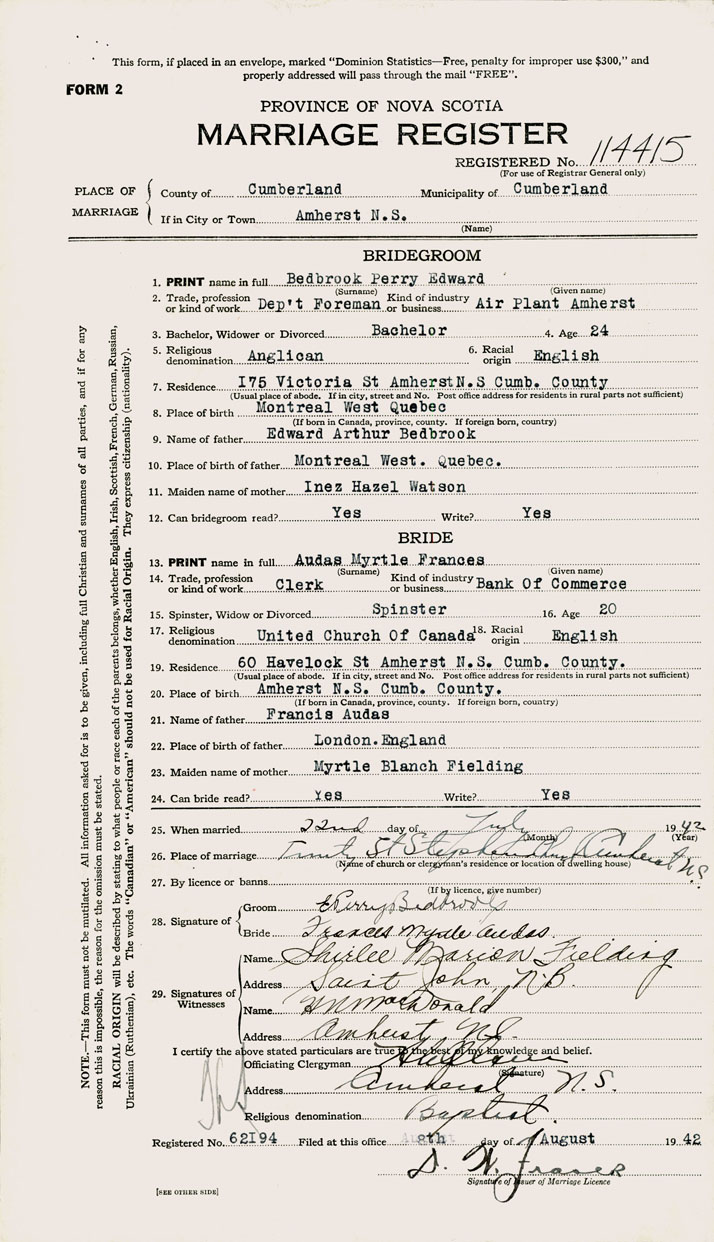 This form, if placed in an envelope, marked "Dominion Statistics—Free, penalty for improper use $300," and
properly addressed will pass through the mail "FREE".
FORM 2
PROVINCE OF NOVA SCOTIA
MARRIAGE REGISTER
REGISTERED No. 114415
(For use of Registrar General only)
PLACE OF MARRIAGE
County of Cumberland Municipality of Cumberland
If in City or Town Amherst N.S.
(Name)
BRIDEGROOM
1. PRINT name in full Bedbrook Perry Edward
(Surname) (Given name)
2. Trade, profession or kind of work Dep't Foreman Kind of industry or business Air Plant Amherst
3. Bachelor, Widower or Divorced Bachelor 4. Age 24
5. Religious denomination Anglican 6. Racial origin English
7. Residence I75 Victoria St Amherst N.S Cumb. County
(Usual place of abode. If in city, street and No. Post office address for residents in rural parts not sufficient)
8. Place of birth Montreal West Quebec
(If born in Canada, province, county. If foreign born, country)
9. Name of father Edward Arthur Bedbrook
10. Place of birth of father Montreal West. Quebec.
11. Maiden name of mother Inez Hazel Watson
12. Can bridegroom read? Yes Write? Yes
BRIDE
13. PRINT name in full Audas Myrtle Frances
(Surname) (Given name)
14. Trade, profession or kind of work Clerk Kind of industry or business Bank Of Commerce
15. Spinster, Widow or Divorced Spinster 16. Age 20
17. Religious denomination United Church Of Canada 18. Racial origin English
19. Residence 60 Havelock St Amherst N.S. Cumb. County.
(Usual place of abode. If in city, street and No. Post office address for residents in rural parts not sufficient)
20. Place of birth Amherst N.S. Cumb. County.
(If born in Canada, province, county. If foreign born, country)
21. Name of father Francis Audas
22. Place of birth of father London.England
23. Maiden name of mother Myrtle Blanch Fielding
24. Can bride read? Yes Write? Yes
25. When married 22nd day of July 1942
(Month) (Year)
26. Place of marriage Trinity St Stephen Amherst N.S.
(Name of church or clergyman's residence or location of dwelling house)
27. By licence or banns
(If by licence, give number)
28. Signature of
Groom Perry Bedbrook
Bride Frances Myrtle Audas.
29. Signatures of Witnesses
Name Shirlee Marion Fielding
Address Saint John, N.B.
Name MacDonald
Address Amherst, N.S.
I certify the above stated particulars are true to the best of my knowledge and belief.
Officiating Clergyman
(Signature)
Address Amherst N.S.
Religious denomination Baptist.
Registered No. 62I94 Filed at this office 8th day of August 1942
D. W. Fraser
Signature of Issuer of Marriage Licence
[SEE OTHER SIDE]
NOTE.—This form must not be mutilated. All information asked for is to be given, including full Christian and surnames of all parties, and if for any
reason this is impossible, the reason for the omission must be stated.
RACIAL ORIGIN will be described by stating to what people or race each of the parents belongs, whether English, Irish, Scottish, French, German, Russian,
Ukrainian (Ruthenian), etc. The words "Canadian" or "American" should not be used for Racial Origin. They express citizenship (nationality).